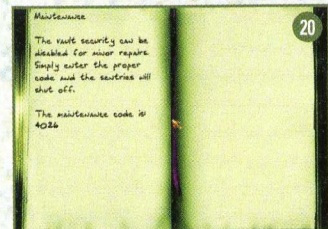 20
Maintenance
The vault security can be
disabled for minor repairs.
Simply enter the proper
code and the sentries will
shut off.
The maintenance code is
4026